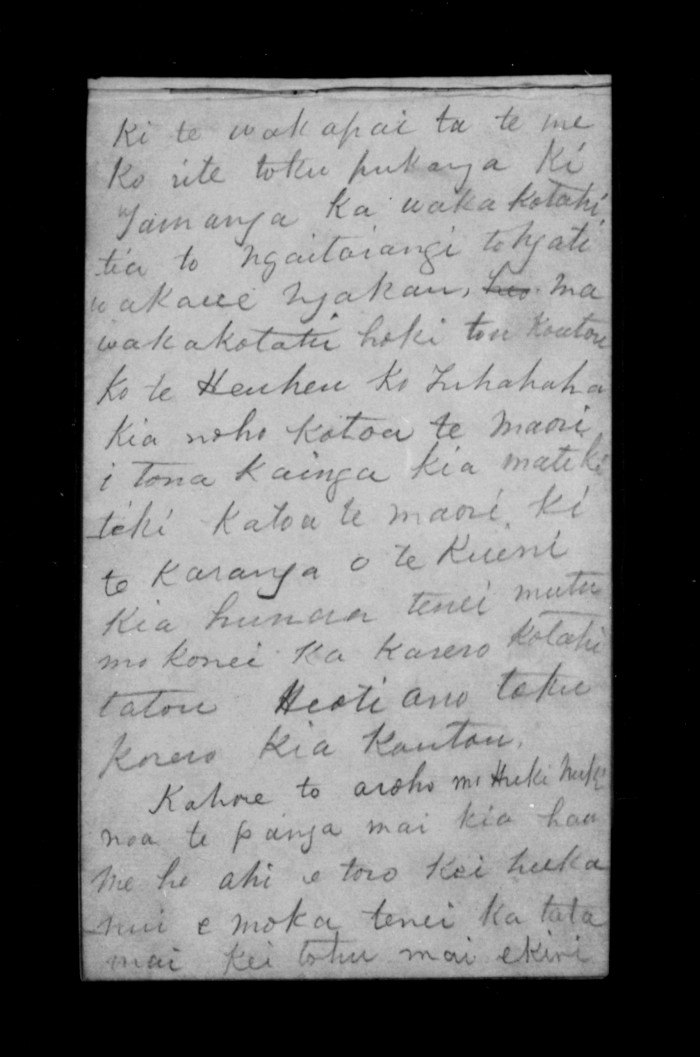 Ki te wakapai ta te me
Ko rite toku pukanga Ki
Tamanga Ka waka kotahi
tia to Ngaitaiangi to Ngati
wakaue Ngakau, ma
wakakotahi hoki tou Koutou
Ko te Heuheu Ko Tuhahaha
Kia noho katoa te maori
i tona Kainga Kia mateki
teki Katoa te maori Ki
te Karanga o te Kueni
Kia hunaa tenei mutu
mo konei Ka Karero kotahi
tatou Heoti ano taku
Korero Kia Koutou.
Kahore to aroho mo Huki huki
noa te panga mai kia hau
me he ahi e toro Kei huka
nui e moka tenei Ka tata
mai Kei tohu mai ekiri